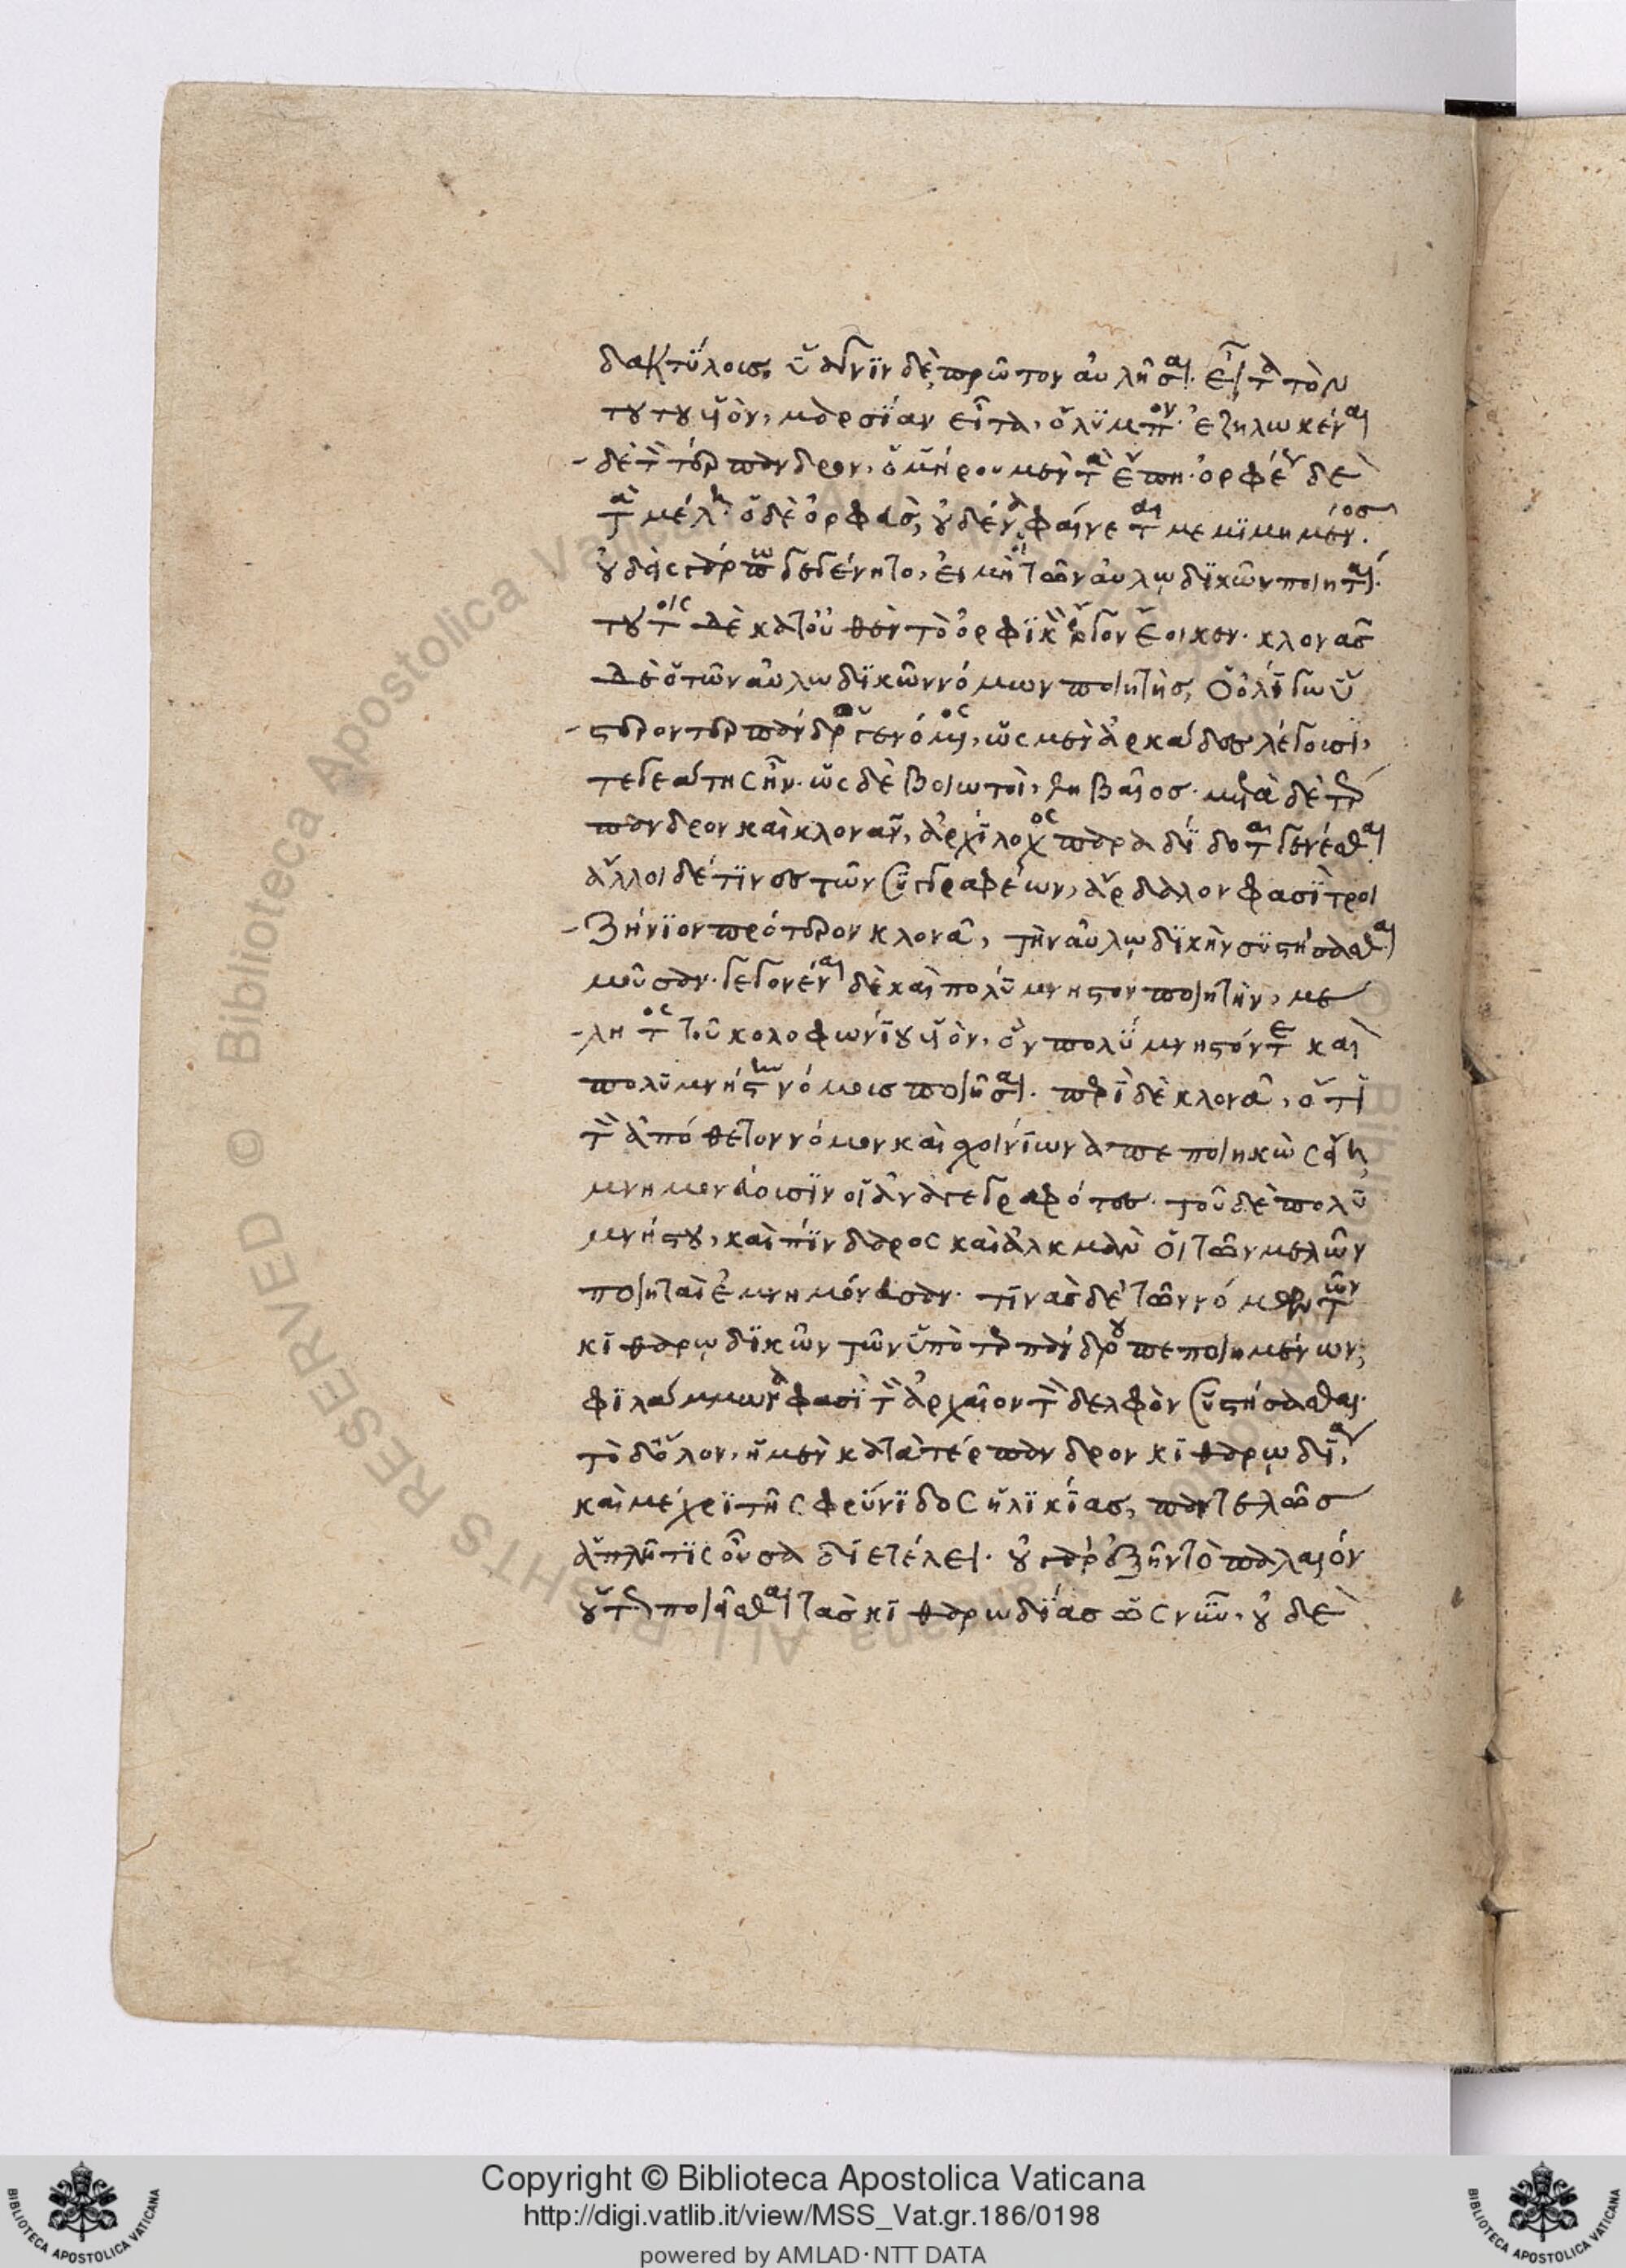 δακτύλοις· ὕαγνιν δὲ πρῶτον αὐλῆσαι· εἶτα τὸν
τούτου υἱὸν, μαρσύαν εἶτα, ὄλυμπον· ἐζηλωκέναι
δὲ τὸν τέρπανδρον, ὁμήρου μὲν τὰ ἔπη· ὀρφέως δὲ
τὰ μέλη· ὁ δὲ ὀρφεὺς, οὐδένα φαίνεται μεμιμημένος·
οὐδεὶς γάρ πω γεγένητο, εἰ μὴ οἱ τῶν αὐλωδικῶν ποιηταί·
τούτοις δὲ κατ' οὐθὲν τὸ ὀρφικὸν ἔργον ἔοικεν· κλονᾶς
δὲ ὁ τῶν αὐλωδικῶν νόμων ποιητὴς, ὁ ὀλίγω ὕ
στερον τερπάνδρου γενόμενος, ὡς μὲν ἀρκάδες λέγουσι,
τεγεάτης ἦν· ὡς δὲ βοιωτοὶ, θηβαῖος· μετὰ δὲ τέρ
πανδρον καὶ κλονᾶν, ἀρχίλοχος παραδίδοται γενέσθαι
ἄλλοι δέ τινες τῶν συγγραφέων, ἄρδαλον φασὶ τροι
ζήνιον πρότερον κλονᾶ, τὴν αὐλωδικὴν συστήσασθαι
μοῦσαν· γεγονέναι δὲ καὶ πολύμνηστον ποιητὴν, με
λητος τοῦ κολοφωνίου υἱὸν, ὃν πολύμνηστόν τε καὶ
πολυμνήστην νόμους ποιῆσαι· περὶ δὲ κλονᾶ, ὅτι
τὸν ἀπόθετον νόμον καὶ σχοινίωνα πεποιηκὼς εἴη
μνημονεύουσιν οἱ ἀναγεγραφότες· τοῦ δὲ πολυ
μνήστου, καὶ πίνδαρος καὶ ἀλκμὰν οἱ τῶν μελῶν
ποιηταὶ ἐμνημόνευσαν· τινὰς δὲ τῶν νόμων τῶν
κιθαρωδικῶν τῶν ὑπὸ τερπάνδρου πεποιημένων,
φιλάμμωνα φασὶ τὸν ἀρχαῖον τὸν δελφὸν συστήσασθαι·
τὸ δ' ὅλον, ἡ μὲν κατὰ τέρπανδρον κιθαρωδία,
καὶ μέχρι τῆς φρύνιδος ἡλικίας, παντελῶς
ἁπλῆ τις οὖσα διετέλει· οὐ γὰρ ἐξῆν τὸ παλαιόν
οὕτως ποιεῖσθαι τὰς κιθαρωδίας ὡς νῦν, οὐδὲ
Copyright © Biblioteca Apostolica Vaticana
http://digi.vatlib.it/view/MSS_Vat.gr.186/0198
powered by AMLAD·NTT DATA